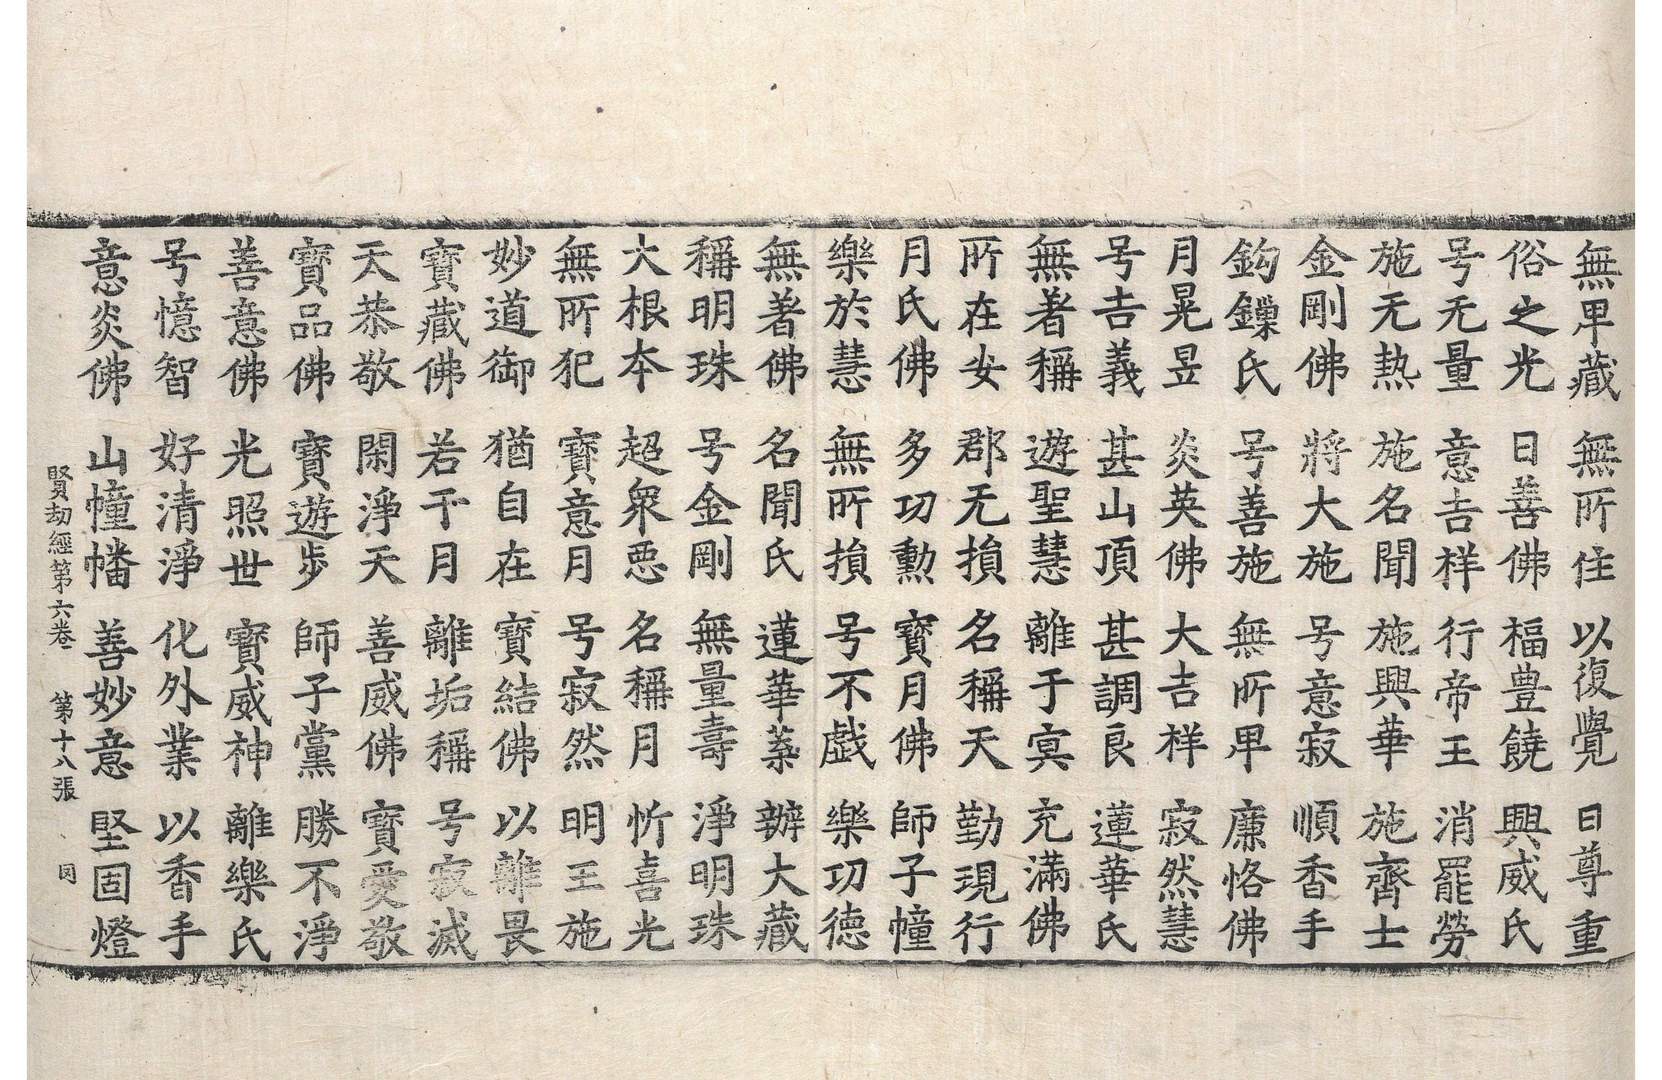 無卑藏 無所住 以復覺 曰尊重
俗之光 日善佛 福豊饒 興威氏
号无量 意吉祥 行帝王 消罷勞
施无热 施名聞 施興華 施齊士
金剛佛 將大施 号意寂 順香手
鈎鏁氏 号善施 無所甲 廉恪佛
月晃昱 炎英佛 大吉祥 寂然慧
号吉義 甚山頂 甚調良 蓮華氏
無著稱 遊聖慧 離于冥 充滿佛
所在安 郡无損 名稱天 勤現行
月氏佛 多功勲 寳月佛 師子幢
樂於慧 無所損 号不戯 樂功德
無著佛 名聞氏 蓮華蘂 辦大藏
稱明珠 号金剛 無量壽 淨明珠
大根本 超衆惡 名稱月 忻喜光
無所犯 寳意月 号寂然 明王施
妙道御 猶自在 寳結佛 以離畏
寳藏佛 若干月 離垢稱 号寂滅
天恭敬 閑淨天 善威佛 寳愛敬
寳品佛 寳遊步 師子黨 勝不淨
善意佛 光照世 寳威神 離樂氏
号憶智 好清淨 化外業 以香手
意炎佛 山幢幡 善妙意 堅固燈
賢劫經第六卷 第十八張 国